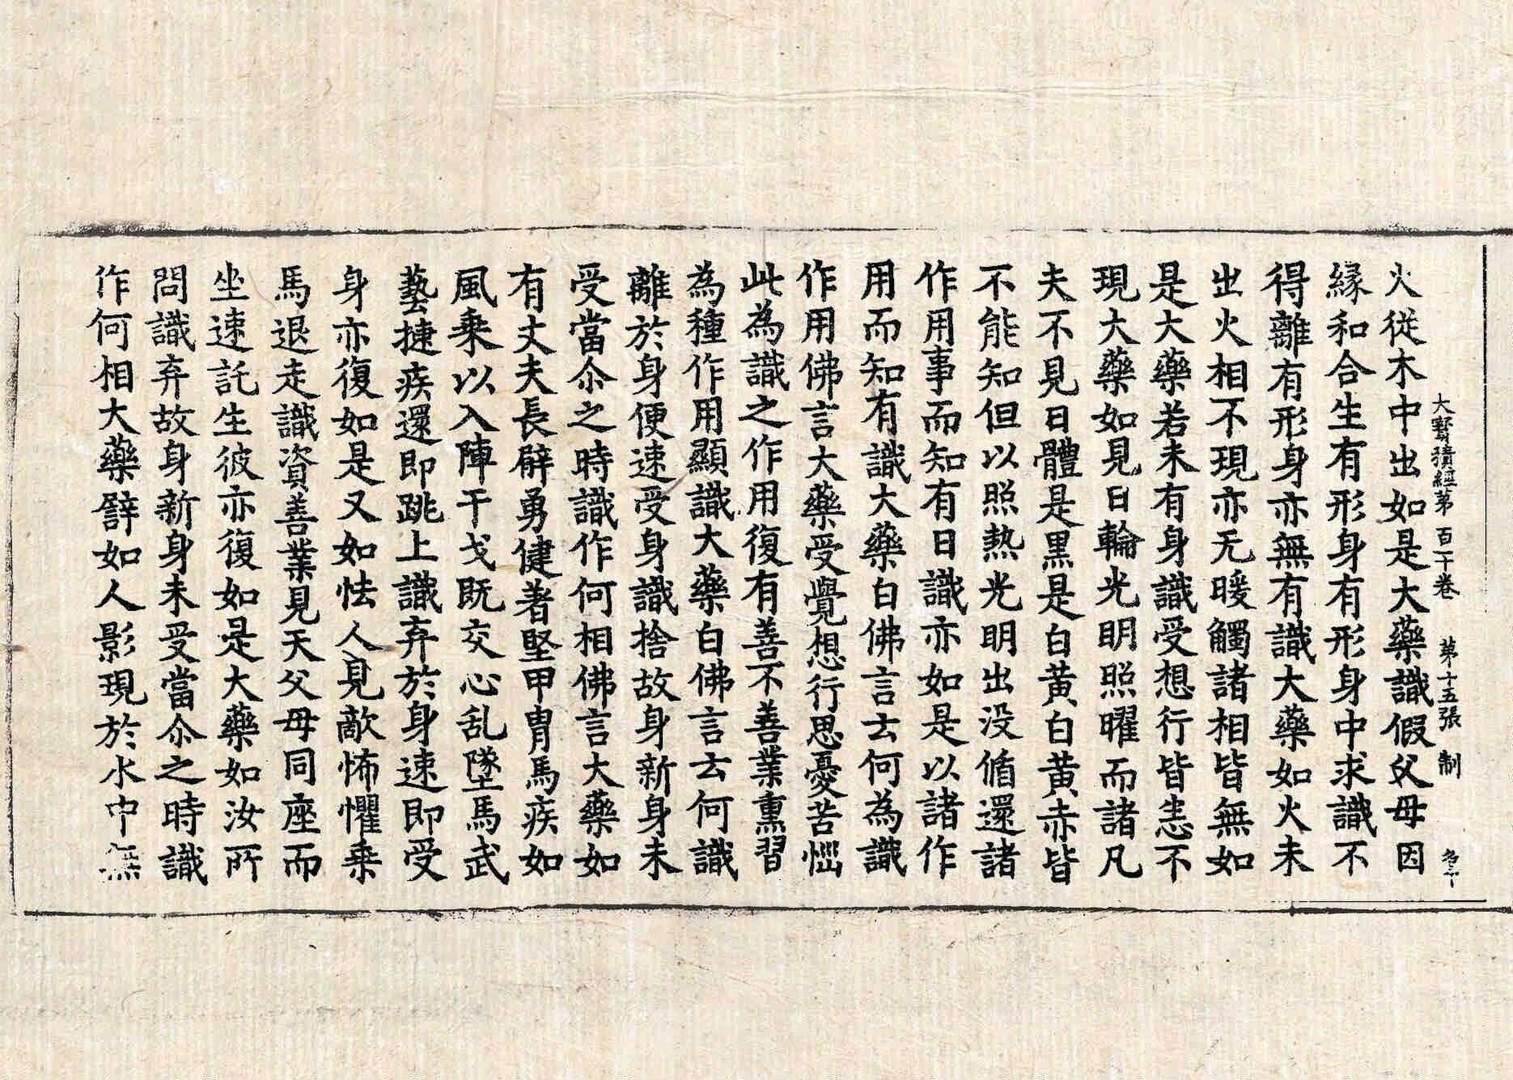 大寶積經第一百一十卷 第十五張 制
火從木中出如是大藥識假父母因
緣和合生有形身有形身中求識不
得離有形身亦無有識大藥如火未
出火相不現亦无暖觸諸相皆無如
是大藥若未有身識受想行皆悉不
現大藥如見日輪光明照曜而諸凡
夫不見日體是黑是白黃白黃赤皆
不能知但以照熱光明出没循還諸
作用事而知有日識亦如是以諸作
用而知有識大藥白佛言云何為識
作用佛言大藥受覺想行思憂苦惱
此為識之作用復有善不善業熏習
為種作用顯識大藥白佛言云何識
離於身便速受身識捨故身新身未
受當尒之時識作何相佛言大藥如
有丈夫長臂勇健著堅甲冑馬疾如
風乘以入陣干戈既交心乱墜馬武
藝捷疾還即跳上識弃於身速即受
身亦復如是又如怯人見敵怖懼乘
馬退走識資善業見天父母同座而
坐速託生彼亦復如是大藥如汝所
問識弃故身新身未受當尒之時識
作何相大藥譬如人影現於水中無